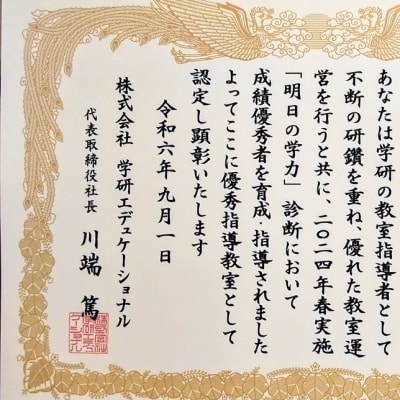 あなたは学研の教室指導者として
不断の研鑽を重ね、優れた教室運
営を行うと共に、二〇二四年春実施
「明日の学力」診断において
成績優秀者を育成・指導されました
よってここに優秀指導教室として
認定し顕彰いたします
令和六年九月一日
株式会社 学研エデュケーショナル
代表取締役社長 川端 篤